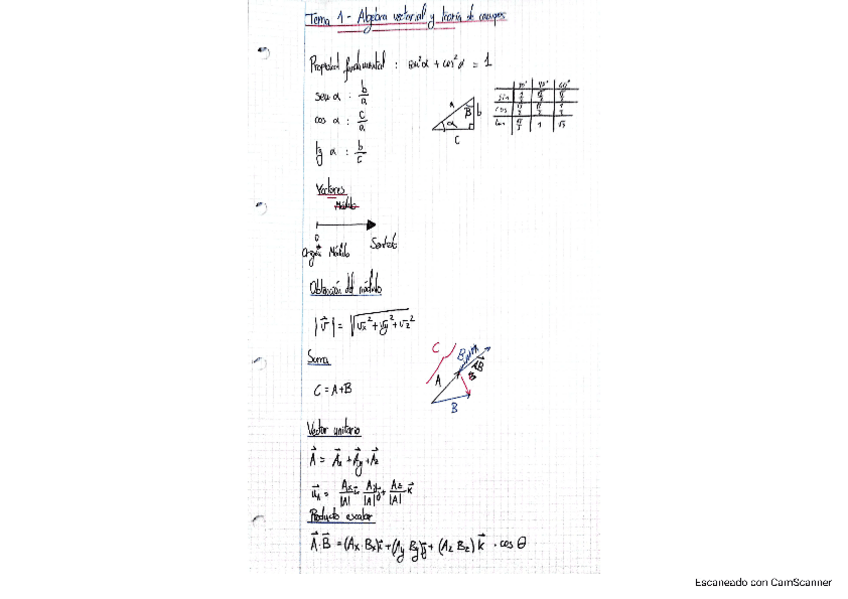 Tema 1 - Algebra vectorial y teoría de campos
Propiedad fundamental : sen²α + cos²α = 1
sen α : b/a
cos α : c/a
tg α : b/c
a
B
b
α
C
30° 45° 60°
sin
cos
tan
1
√3
Vectores
Módulo
O
Origen Módulo Sentido
Obtención del módulo
|v⃗| = √vx² + vy² + vz²
Suma
C = A+B
C
A
B
B
Vector unitario
A⃗ = A⃗x + A⃗y + A⃗z
u⃗A = Ax/|A| i⃗ + Ay/|A| j⃗ + Az/|A| k⃗
Producto escalar
A⃗·B⃗ = (Ax·Bx)i⃗ + (Ay By)j⃗ + (Az Bz) k⃗ · cos θ
Escaneado con CamScanner